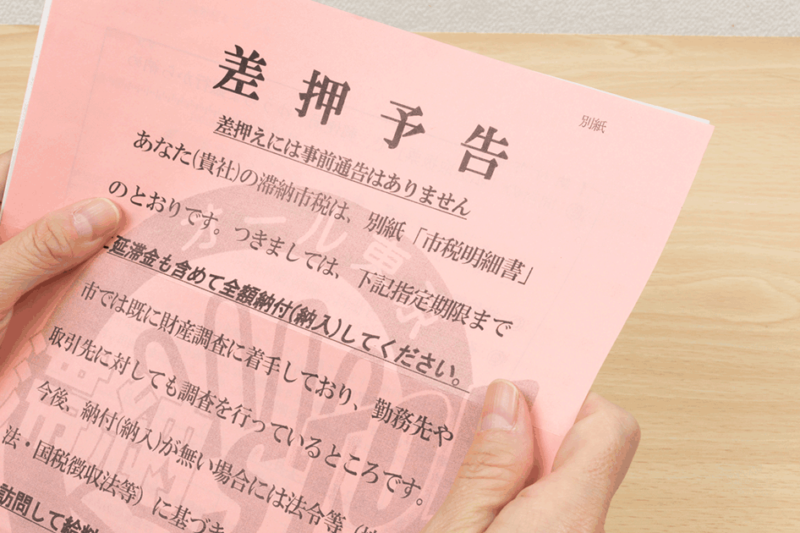 別紙
差押予告
差押えには事前通告はありません
あなた(貴社)の滞納市税は、別紙「市税明細書」
のとおりです。つきましては、下記指定期限まで
延滞金も含めて全額納付(納入)してください。
市では既に財産調査に着手しており、勤務先や
取引先に対しても調査を行っているところです。
今後、納付(納入)が無い場合には法令等
法・国税徴収法等)に基づき
訪問して給料